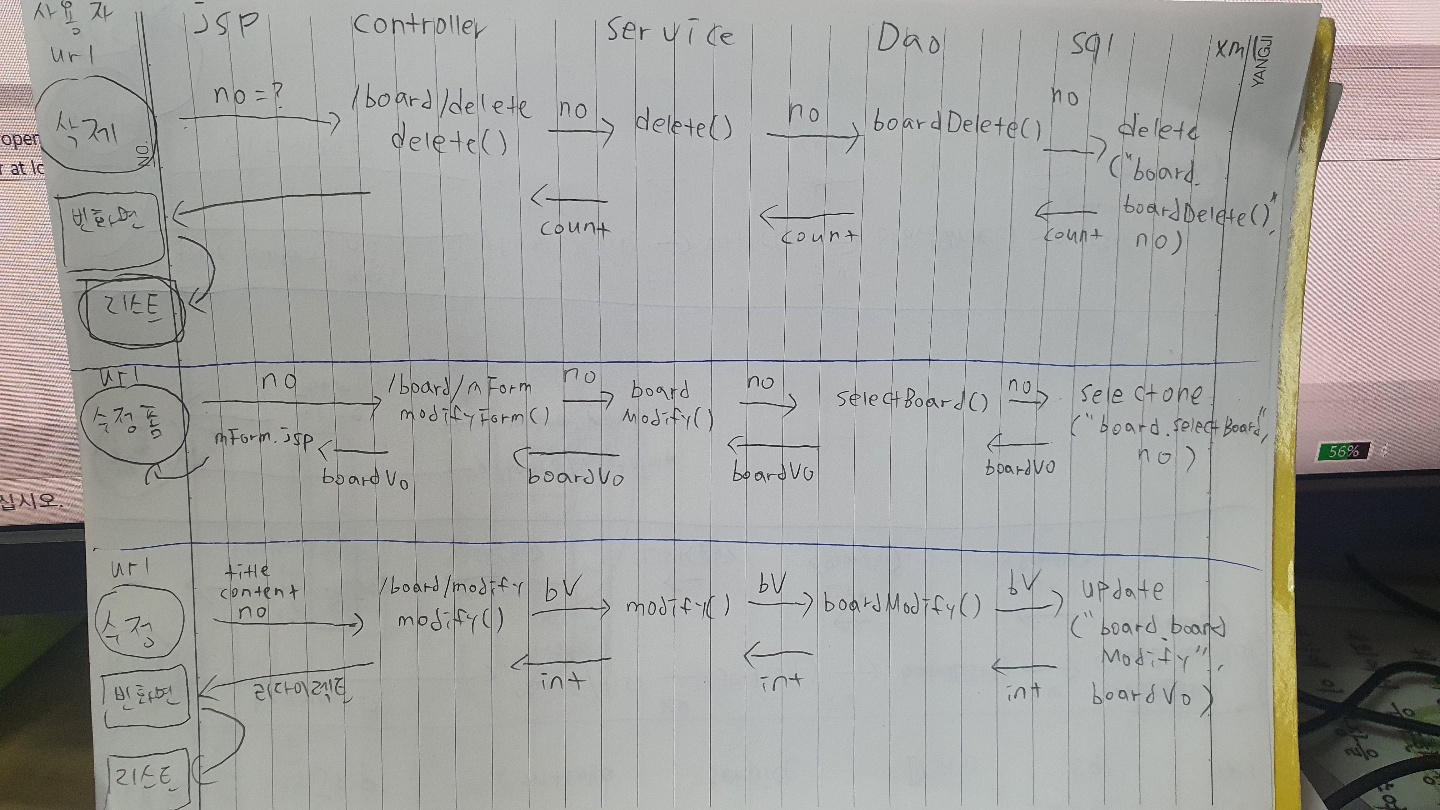 사용자 jsp controller service Dao sql xml
YANGJI
url
삭제
NO.
no=?
/board/delete
delete()
no
delete()
no
boardDelete()
no
delete
("board.
boardDelete()",
no)
count
count
count
빈화면
리스트
url
수정폼
no
/board/mForm
modifyForm()
no
board
Modify()
no
selectBoard()
no
selectone
("board.selectBoard",
no)
mForm.jsp
boardVo
boardVo
boardVO
boardVO
url
수정
title
content
no
/board/modify
modify()
bV
modify()
bV
boardModify()
bV
update
("board.board
Modify",
boardVo)
리다이렉트
int
int
int
빈화면
리스트
open
r at lo
십시오.
56%